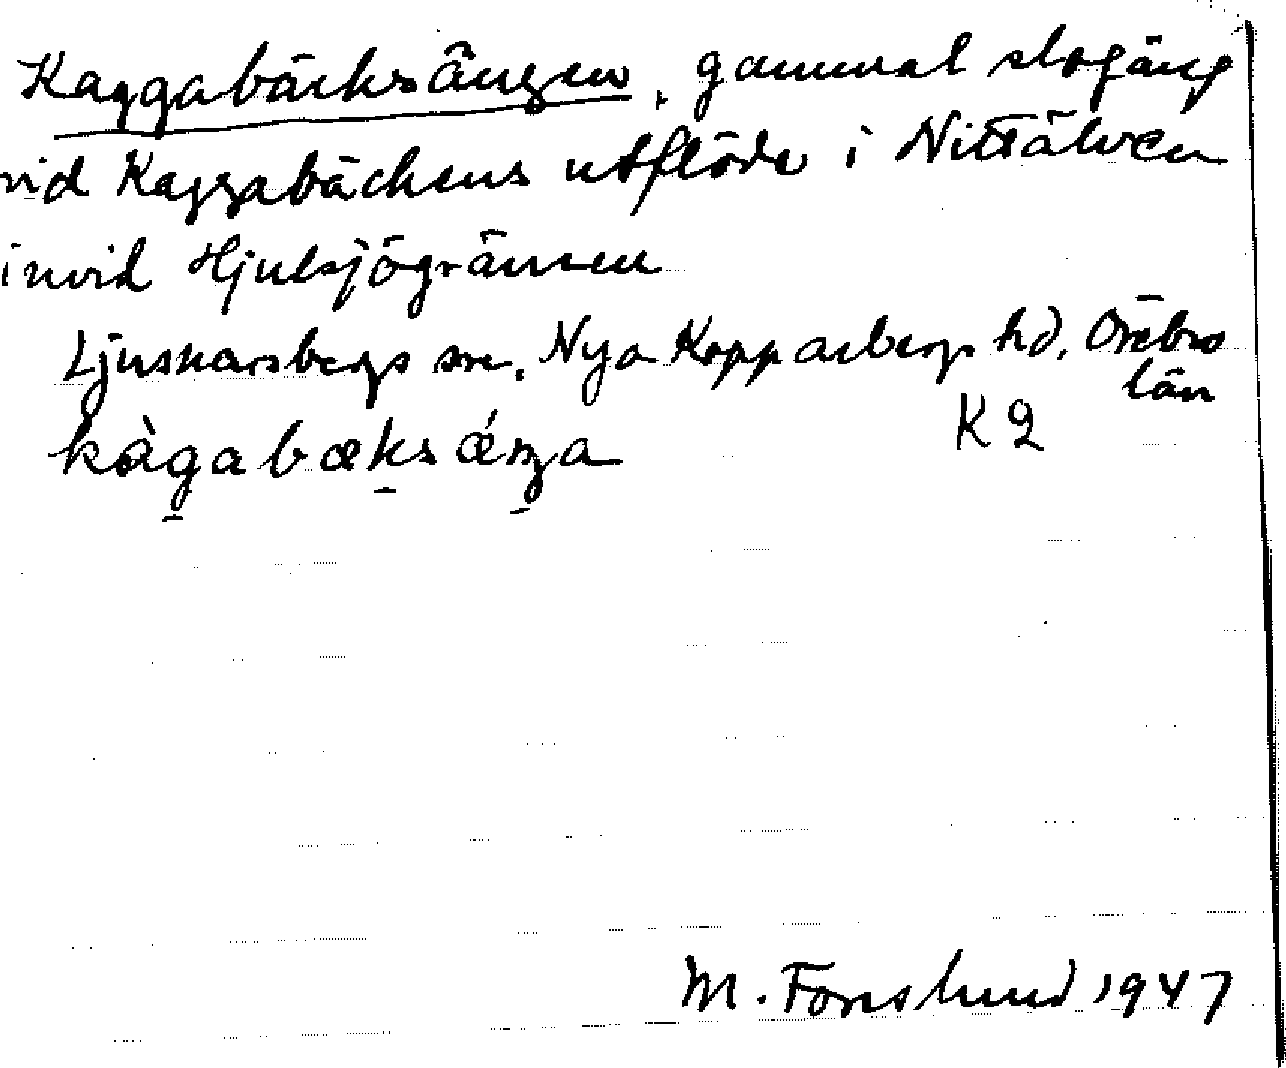 Kaggabäcksängen, gammal slogäng
vid Kaggabäckens utflöde i Nittälven
invid Hjulsjögränsen
Ljusnarsbergs sn, Nya Kopparbergs hd, Örebro
län
K 2
kàgabæksǽŋa
M. Forslund 1947